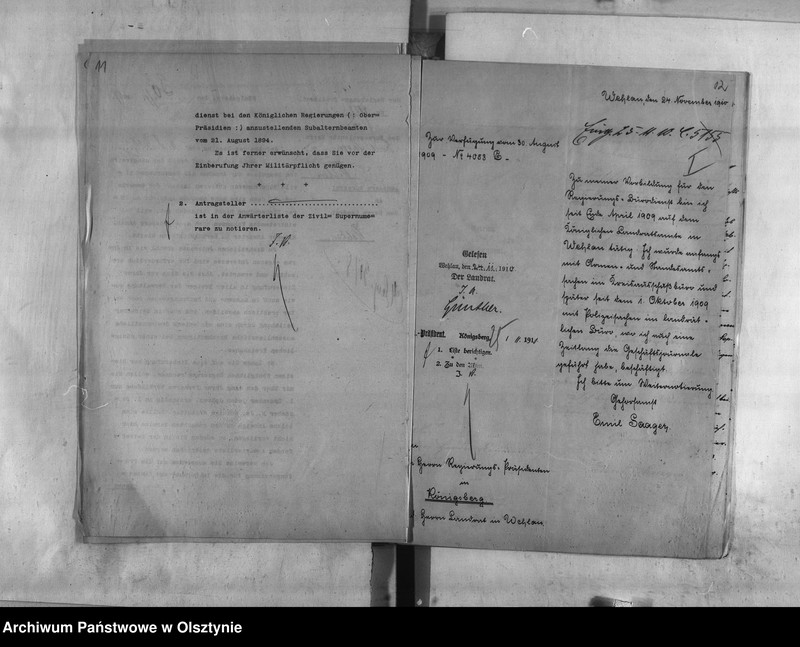 11
dienst bei den Königlichen Regierungen (: Ober=
Präsidien :) anzustellenden Subalternbeamten
vom 21. August 1894.
Es ist ferner erwünscht, dass Sie vor der
Einberufung Jhrer Militärpflicht genügen.
+ + +
2. Antragsteller
ist in der Anwärterliste der Zivil= Supernume=
rare zu notieren.
J. V.
12
Wehlau, den 24. November 1910.
Zur Verfügung vom 30. August
1909 - Nr. 4088 C.-
Gelesen
Wehlau, den 24. 11. 1910
Der Landrat.
J. A.
Günther.
-Präsident. Königsberg,
1. Liste berichtigen.
2. Zu den Akten.
J. V.
Herrn Regierungs-Präsidenten
in
Königsberg
Herrn Landrat in Wehlau
Zu meiner Vorbildung für den
Regierungs-Bürodienst bin ich
seit Ende April 1909 auf dem
Königlichen Landratsamte in
Wehlau tätig. Ich wurde anfangs
mit Armen- und Standesamts-
sachen im Kreisausschußbüro und
später seit dem 1. Oktober 1909
mit Polizeisachen im landrät-
lichen Büro, wo ich noch eine
Zeitlang die Geschäftsjournale
geführt habe, beschäftigt.
Ich bitte um Weiternotierung
Gehorsamst
Emil Saager.
Archiwum Państwowe w Olsztynie